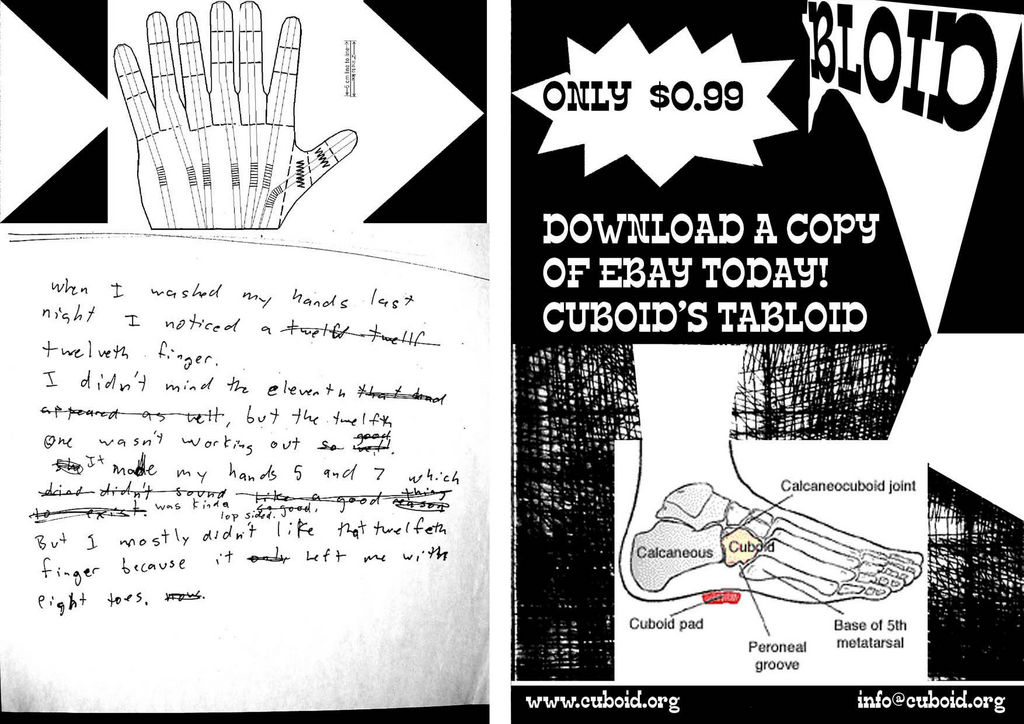 when I washed my hands last
night I noticed a twelft twelff
twelveth finger.
I didn't mind the eleventh that had
appeared as well, but the twelfth
one wasn't working out so good
well.
It made my hands 5 and 7 which
didn't sound like a good thing
to exist. was kinda so good.
lop sided.
But I mostly didn't like that twelfeth
finger because it only left me with
eight toes. now.
BLOID
ONLY $0.99
DOWNLOAD A COPY
OF EBAY TODAY!
CUBOID'S TABLOID
Calcaneocuboid joint
Calcaneous
Cuboid
Cuboid pad
Peroneal
groove
Base of 5th
metatarsal
www.cuboid.org
info@cuboid.org